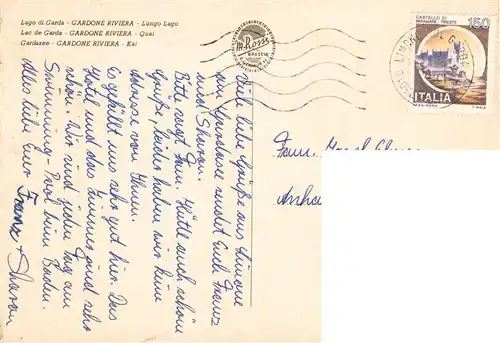 Lago di Garda - GARDONE RIVIERA - Lungo Lago
Lac de Garde - GARDONE RIVIERA - Quai
Gardasee - GARDONE RIVIERA - Kai
m. Rossi
BRESCIA
CASTELLO DI
MIRAMARE · TRIESTE
150
ITALIA
Viele liebe Grüße aus Limone
am Gardasee sendet Euch Franz
und Sharon.
Bitte sagt Fam. Hüttl auch schöne
Grüße, leider haben wir keine
Adresse von Ihnen.
Es gefällt uns sehr gut hier. Das
Hotel und das Zimmer sind sehr
schön. Wir sind jeden Tag am
Swimming-Pool beim Baden.
Alles liebe Euer Franz + Sharon
Fam.